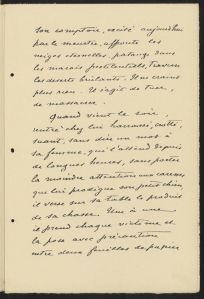 son comptoir, excité aujourd'hui
par le meurtre, affronte les
neiges éternelles, patauge dans
les marais pestilentiels, traverse
les déserts brûlants. Il ne craint
plus rien. Il s'agit de tuer,
de massacrer.
Quand vient le soir,
rentré chez lui harassé,
suant, sans dire un mot à
sa femme, qui l'attend depuis
de longues heures, sans porter
la moindre attention aux caresses
que lui prodigue son petit chien,
il verse sur sa table le produit
de sa chasse. Une à une
il prend chaque victime et
la pose avec précaution
entre deux feuilles de papier